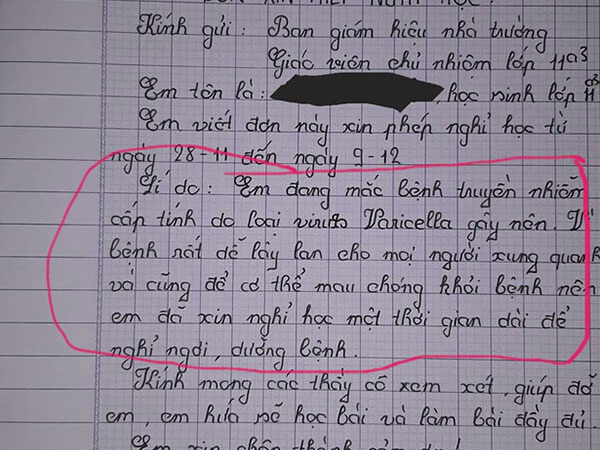 ĐƠN XIN PHÉP NGHỈ HỌC.
Kính gửi: Ban giám hiệu nhà trường
Giáo viên chủ nhiệm lớp 11a3
Em tên là: , học sinh lớp 11a3
Em viết đơn này xin phép nghỉ học từ
ngày 28-11 đến ngày 9-12
Lí do: Em đang mắc bệnh truyền nhiễm
cấp tính do loại viruts Varicella gây nên. Vì
bệnh rất dễ lây lan cho mọi người xung quanh
và cũng để có thể mau chóng khỏi bệnh nên
em đã xin nghỉ học một thời gian dài để
nghỉ ngơi, dưỡng bệnh.
Kính mong các thầy cô xem xét, giúp đỡ
em, em hứa sẽ học bài và làm bài đầy đủ.
Em xin chân thành cảm ơn!